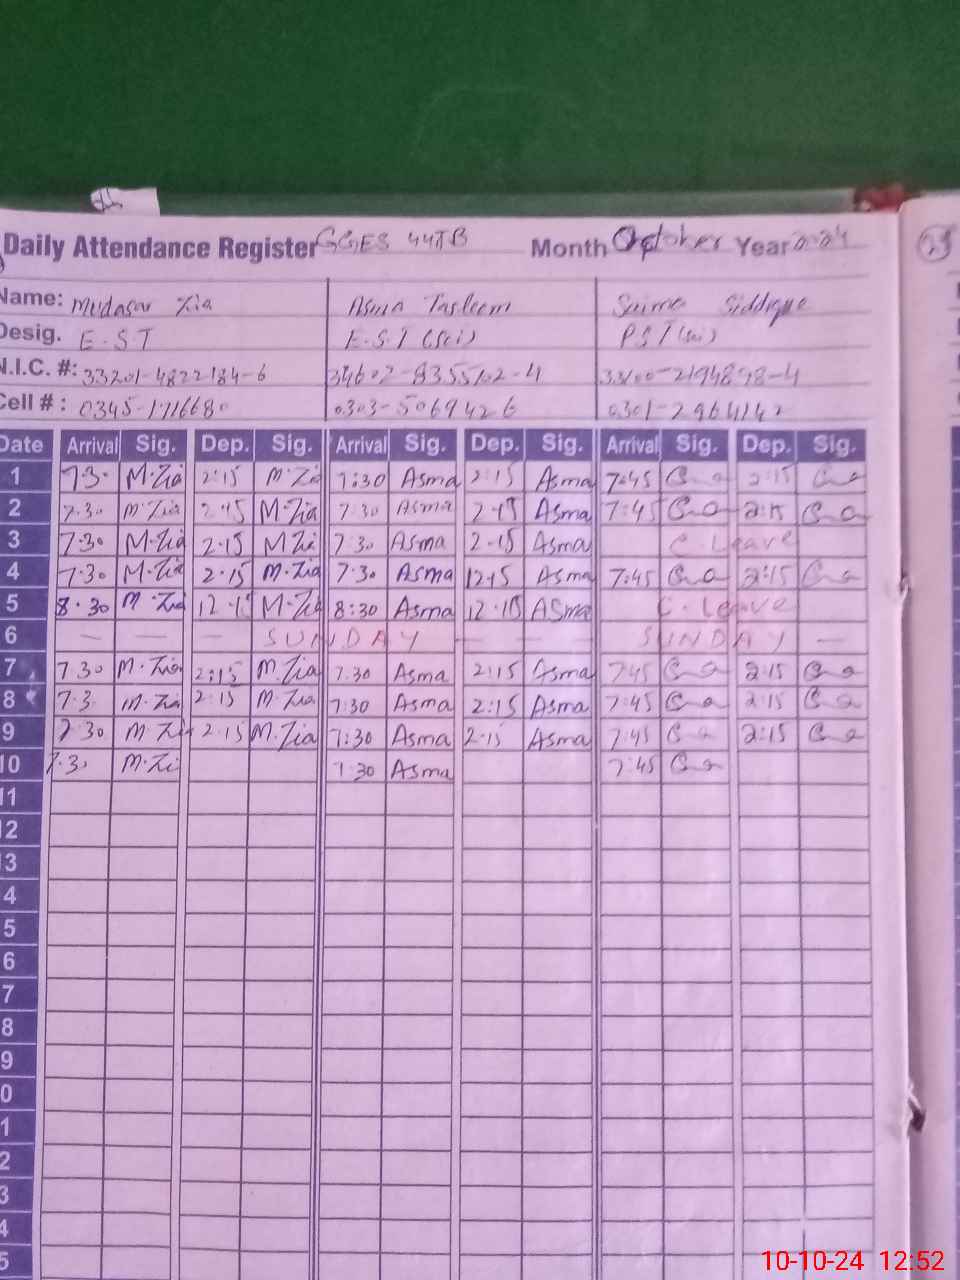 Daily Attendance Register GGES 44JB Month October Year 2024
Name: Mudasar Zia Asma Tasleem Saima Siddique
Desig. E.S.T E.S.T (Sci) PST (sci)
N.I.C. #: 33201-4822184-6 34602-8355102-4 33100-2194898-4
Cell # : 0345-1716680 0303-5069426 0301-2964142
Date Arrival Sig. Dep. Sig. Arrival Sig. Dep. Sig. Arrival Sig. Dep. Sig.
1 7.3. M.Zia 2:15 M.Zia 7:30 Asma 2:15 Asma 7:45 2:15
2 7.30 M.Zia 2.15 M.Zia 7.30 Asma 2.15 Asma 7:45 2:15
3 7.30 M.Zia 2.15 M.Zia 7.30 Asma 2.15 Asma C.Leave
4 7.30 M.Zia 2.15 M.Zia 7.30 Asma 12.15 Asma 7:45 2:15
5 8.30 M.Zia 12.15 M.Zia 8:30 Asma 12.15 ASma C.Leave
6 — — — SUNDAY — — — SUNDAY —
7 7.30 M.Zia 2:15 M.Zia 7.30 Asma 2:15 Asma 7:45 2:15
8 7.3. M.Zia 2.15 M.Zia 7:30 Asma 2:15 Asma 7:45 2:15
9 7.30 M.Zia 2.15 M.Zia 7:30 Asma 2.15 Asma 7:45 2:15
10 7.3. M.Zi 7.30 Asma 7:45
11
12
13
4
5
6
7
8
9
0
1
2
3
4
5
10-10-24 12:52